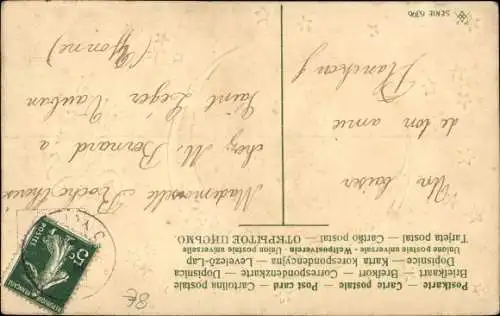 Postkarte — Carte postale — Post card — Cartolina postale
Briefkaart — Brefkort — Correspondenzkarte — Dopisnica
Dopisnice — Karta korespondencyjna — Levelező-Lap
Unione postale universale — Weltpostverein — Union postale universelle
Tarjeta postal — Cartão postal — ОТКРЫТОЕ ПИСЬМО.
Un baiser
de ton amie
Mademoiselle
chez M. Bernard a
Saint Léger Vauban
(Yonne)
SERIE
5c
POSTES
8€